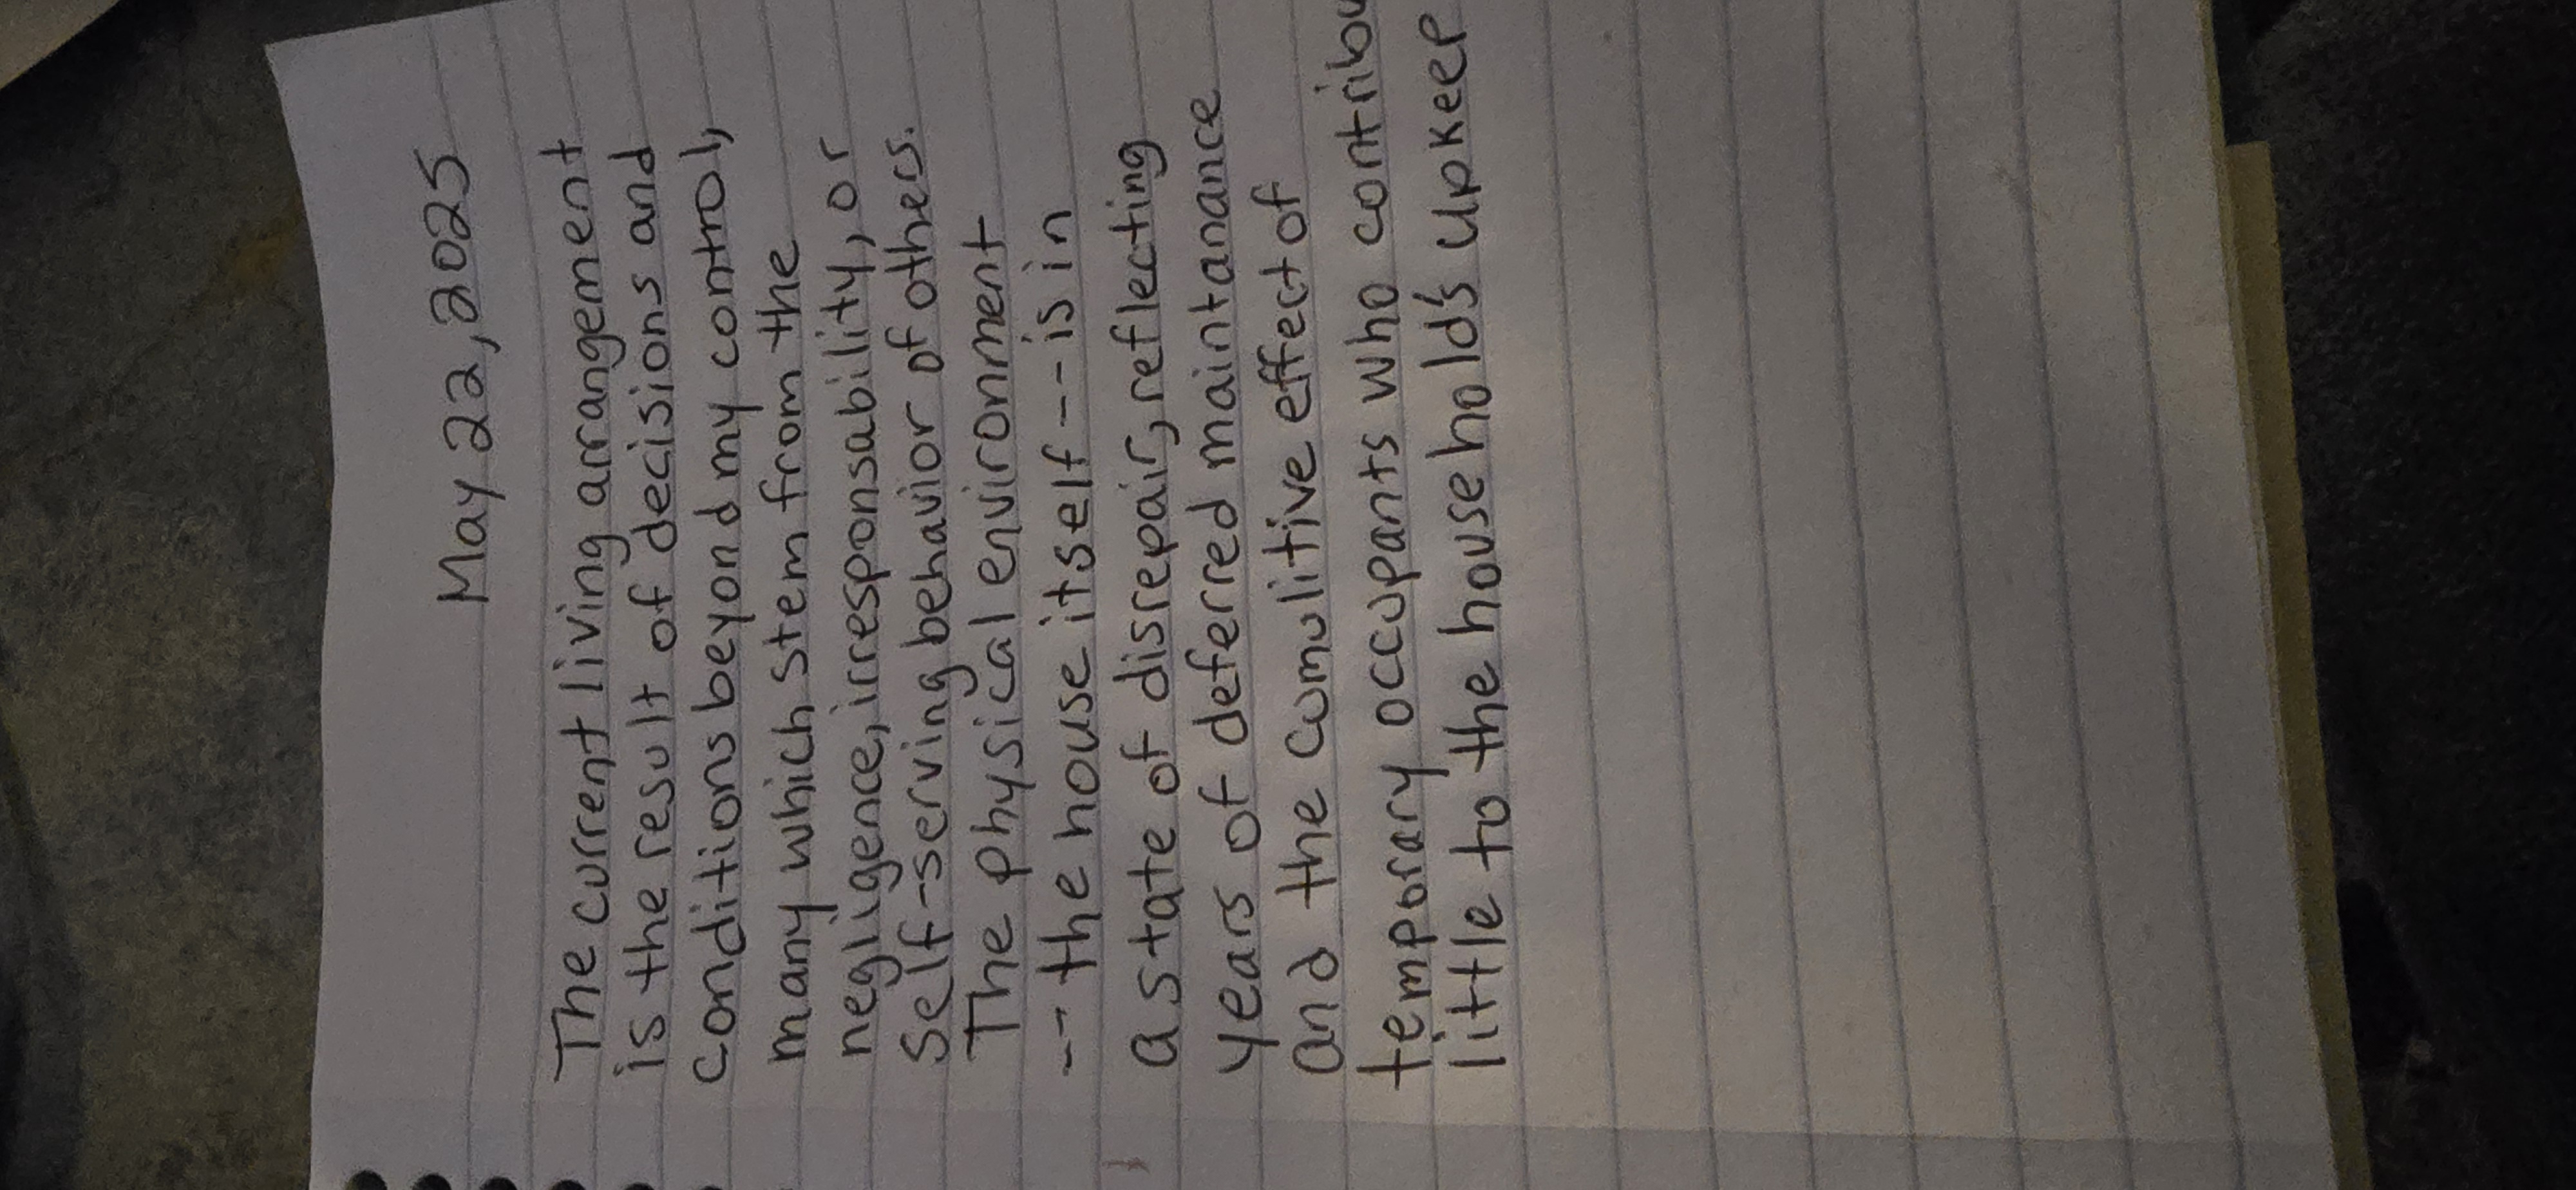 May 22, 2025
The current living arrangement
is the result of decisions and
conditions beyond my control,
many which stem from the
negligence, irresponsability, or
self-serving behavior of others.
The physical environment
-- the house itself -- is in
a state of disrepair, reflecting
years of deferred maintanance
and the cumulitive effect of
temporary occupants who contribu
little to the household's upkeep